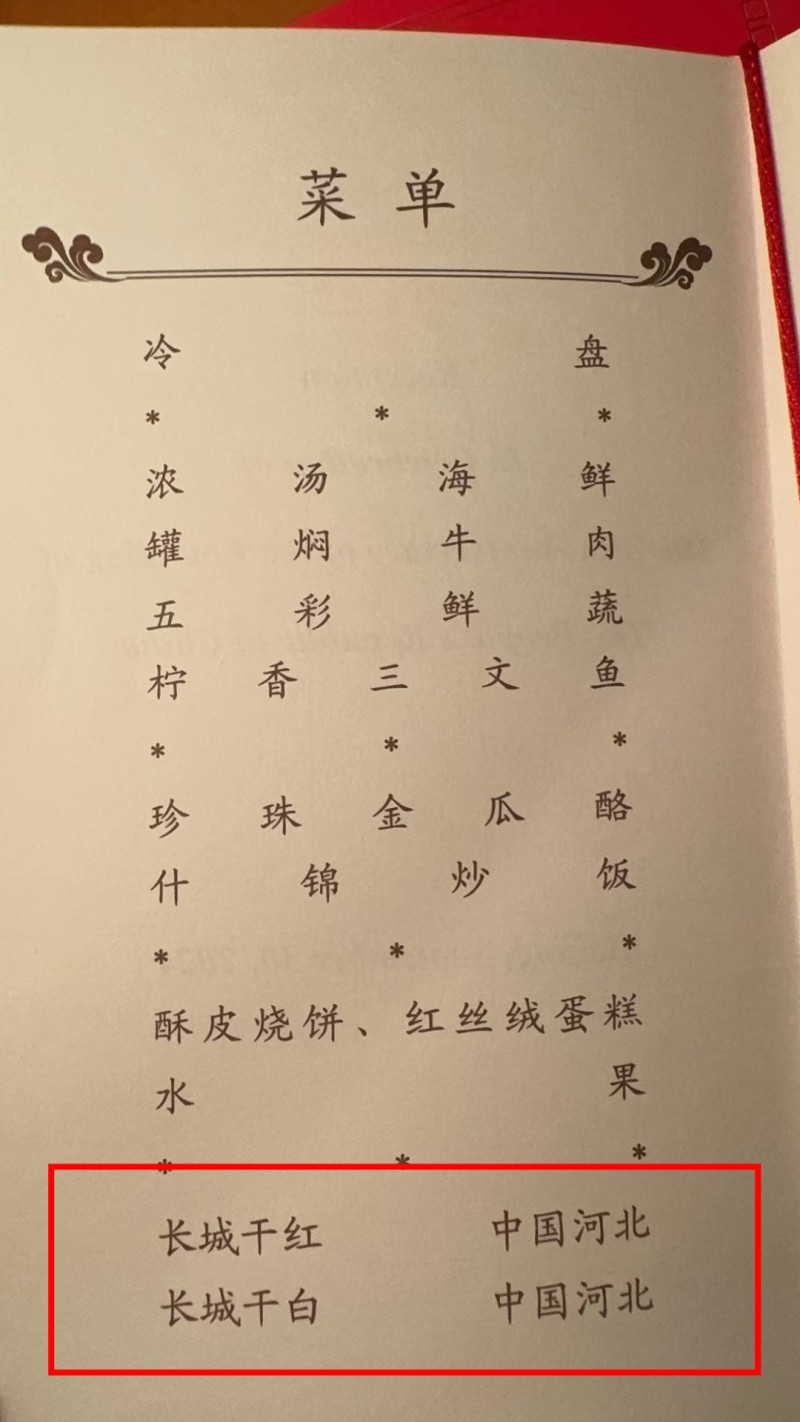 菜单
冷盘
* * *
浓汤海鲜
罐焖牛肉
五彩鲜蔬
柠香三文鱼
* * *
珍珠金瓜酪
什锦炒饭
* * *
酥皮烧饼、红丝绒蛋糕
水果
* * *
长城干红 中国河北
长城干白 中国河北